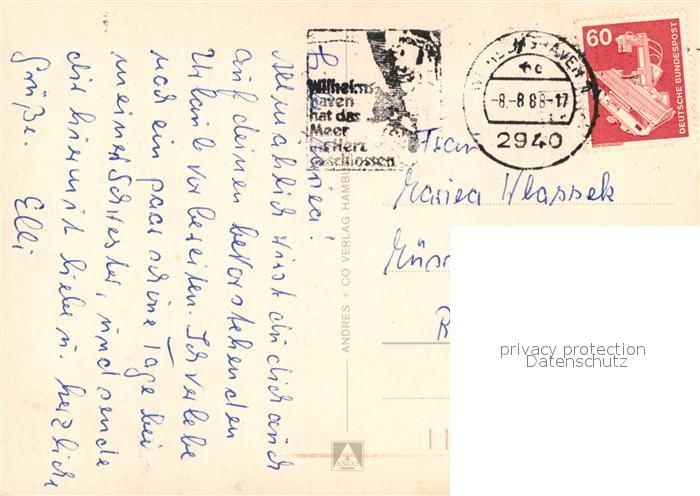 Maria!
Allmählich wirst du dich auch
auf deinen bevorstehenden
Urlaub vorbereiten. Ich verlebe
noch ein paar schöne Tage bei
meiner Schwester, und sende
dir hiermit liebe u. herzliche
Grüße. Elli
ANDRES + CO VERLAG HAMBU
ANCO
Wilhelms
haven
hat das
Meer
Herz
schlossen
-8.-8 88-17
2940
60
DEUTSCHE BUNDESPOST
Frau
Maria Wlassek
privacy protection
Datenschutz